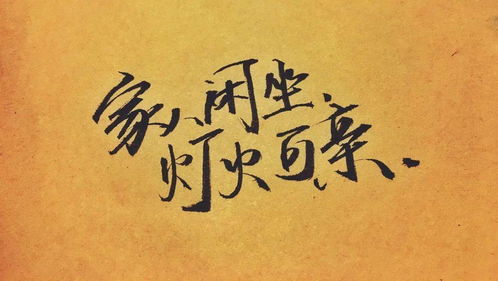 家人闲坐
灯火可亲